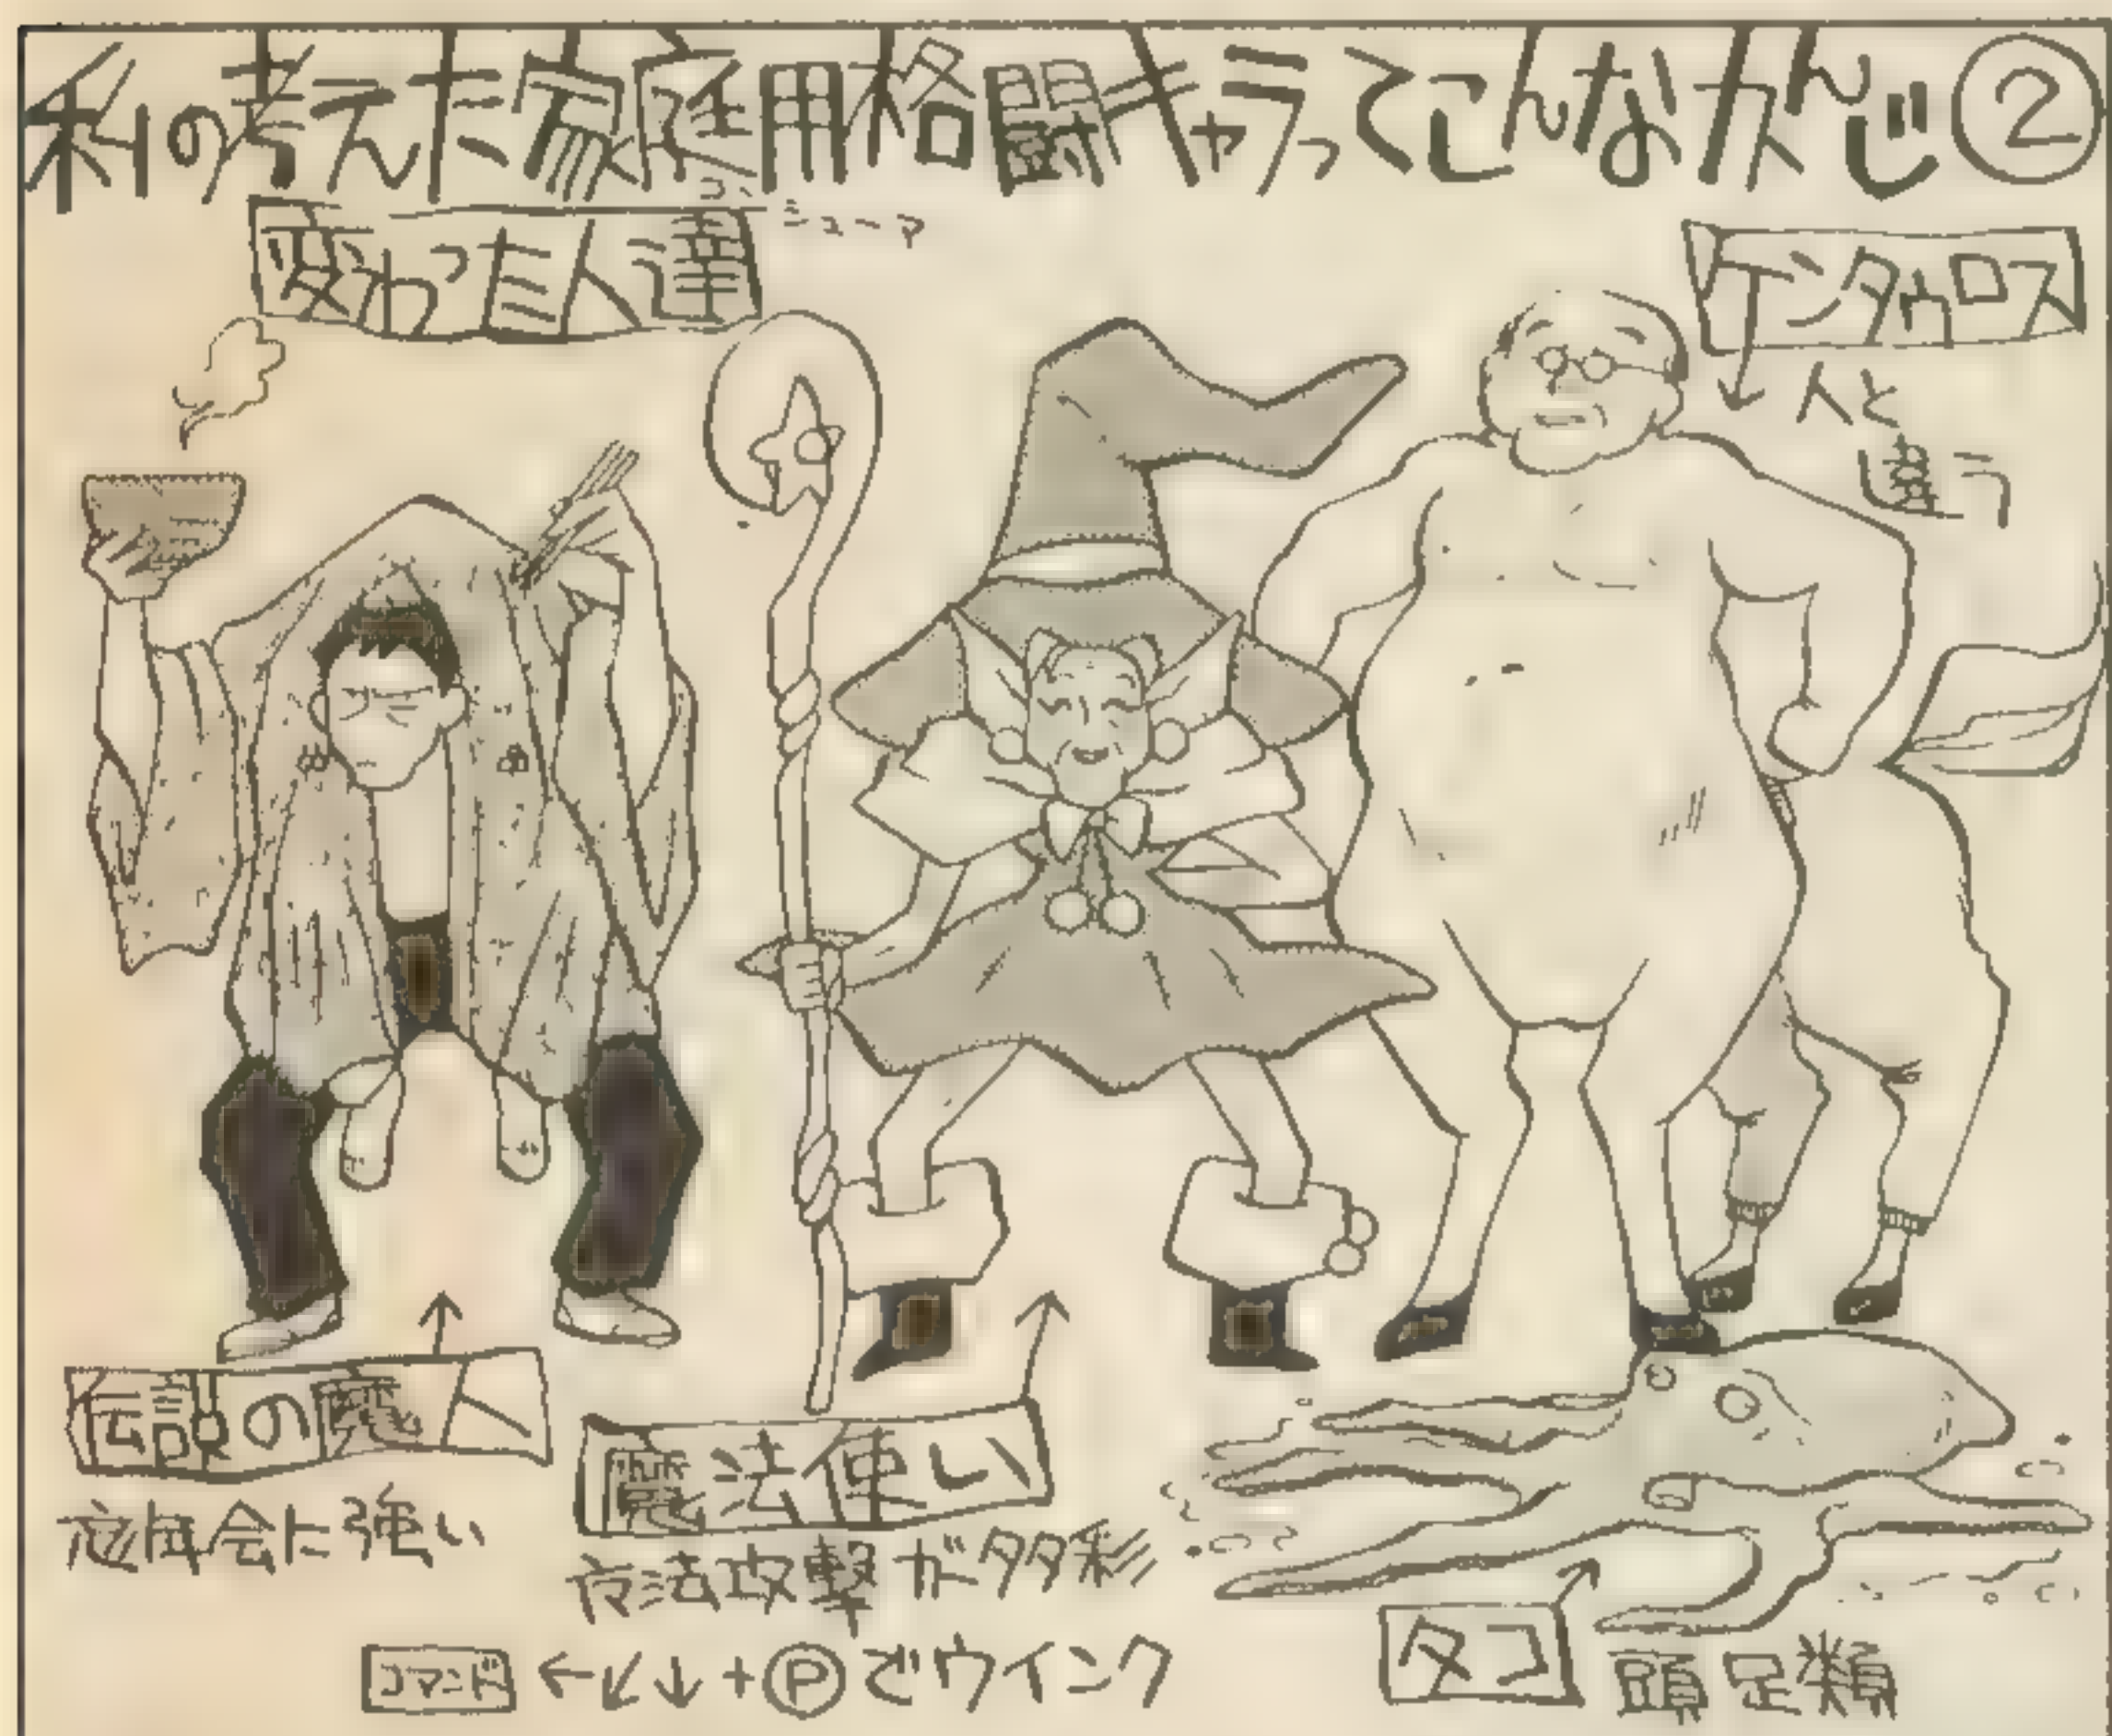 私の考えた家庭用格闘キャラってこんなカんじ②
変わった人達
ケンタウロス
人と
違う
伝説の魔人
忘年会に強い
魔法使い
魔法攻撃が多彩
コマンド ←↙↓+Ⓟでウインク
タコ 頭足類